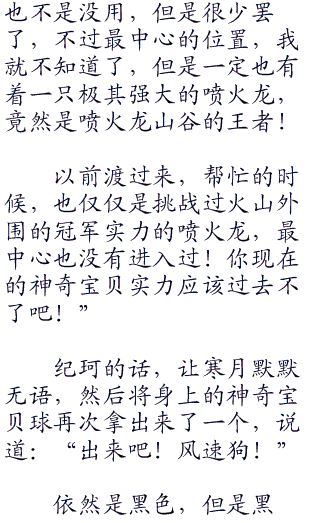 也不是没用，但是很少罢
了，不过最中心的位置，我
就不知道了，但是一定也有
着一只极其强大的喷火龙，
竟然是喷火龙山谷的王者！
以前渡过来，帮忙的时
候，也仅仅是挑战过火山外
围的冠军实力的喷火龙，最
中心也没有进入过！你现在
的神奇宝贝实力应该过去不
了吧！”
纪珂的话，让寒月默默
无语，然后将身上的神奇宝
贝球再次拿出来了一个，说
道：“出来吧！风速狗！”
依然是黑色，但是黑